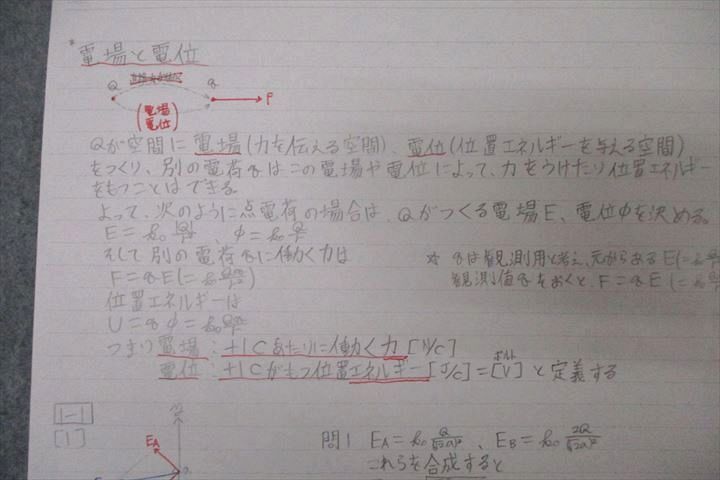 電場と電位
Q q F
(電場
電位)
Qが空間に電場(力を伝える空間)、電位(位置エネルギーを与える空間)
をつくり、別の電荷qはこの電場や電位によって、力をうけたり位置エネルギー
をもつことはできる。
よって、次のように点電荷の場合は、Qがつくる電場E、電位φを決める。
E = k₀ |Q|/r²、φ = k₀ Q/r
そして別の電荷qに働く力は
☆ qは観測用と考え、元からある E(= k₀
F = qE (= k₀ Qq/r²)
観測値qをおくと、F = qE (= k₀
位置エネルギーは
U = qφ = k₀ Qq/r
つまり電場：+1Cあたりに働く力 [N/C]
電位：+1Cがもつ位置エネルギー [J/C] = [V] と定義する
ボルト
1-1
[1]
EA
問1 EA = k₀ Q/(√2a)²、EB = k₀ 2Q/(√2a)²
これらを合成すると